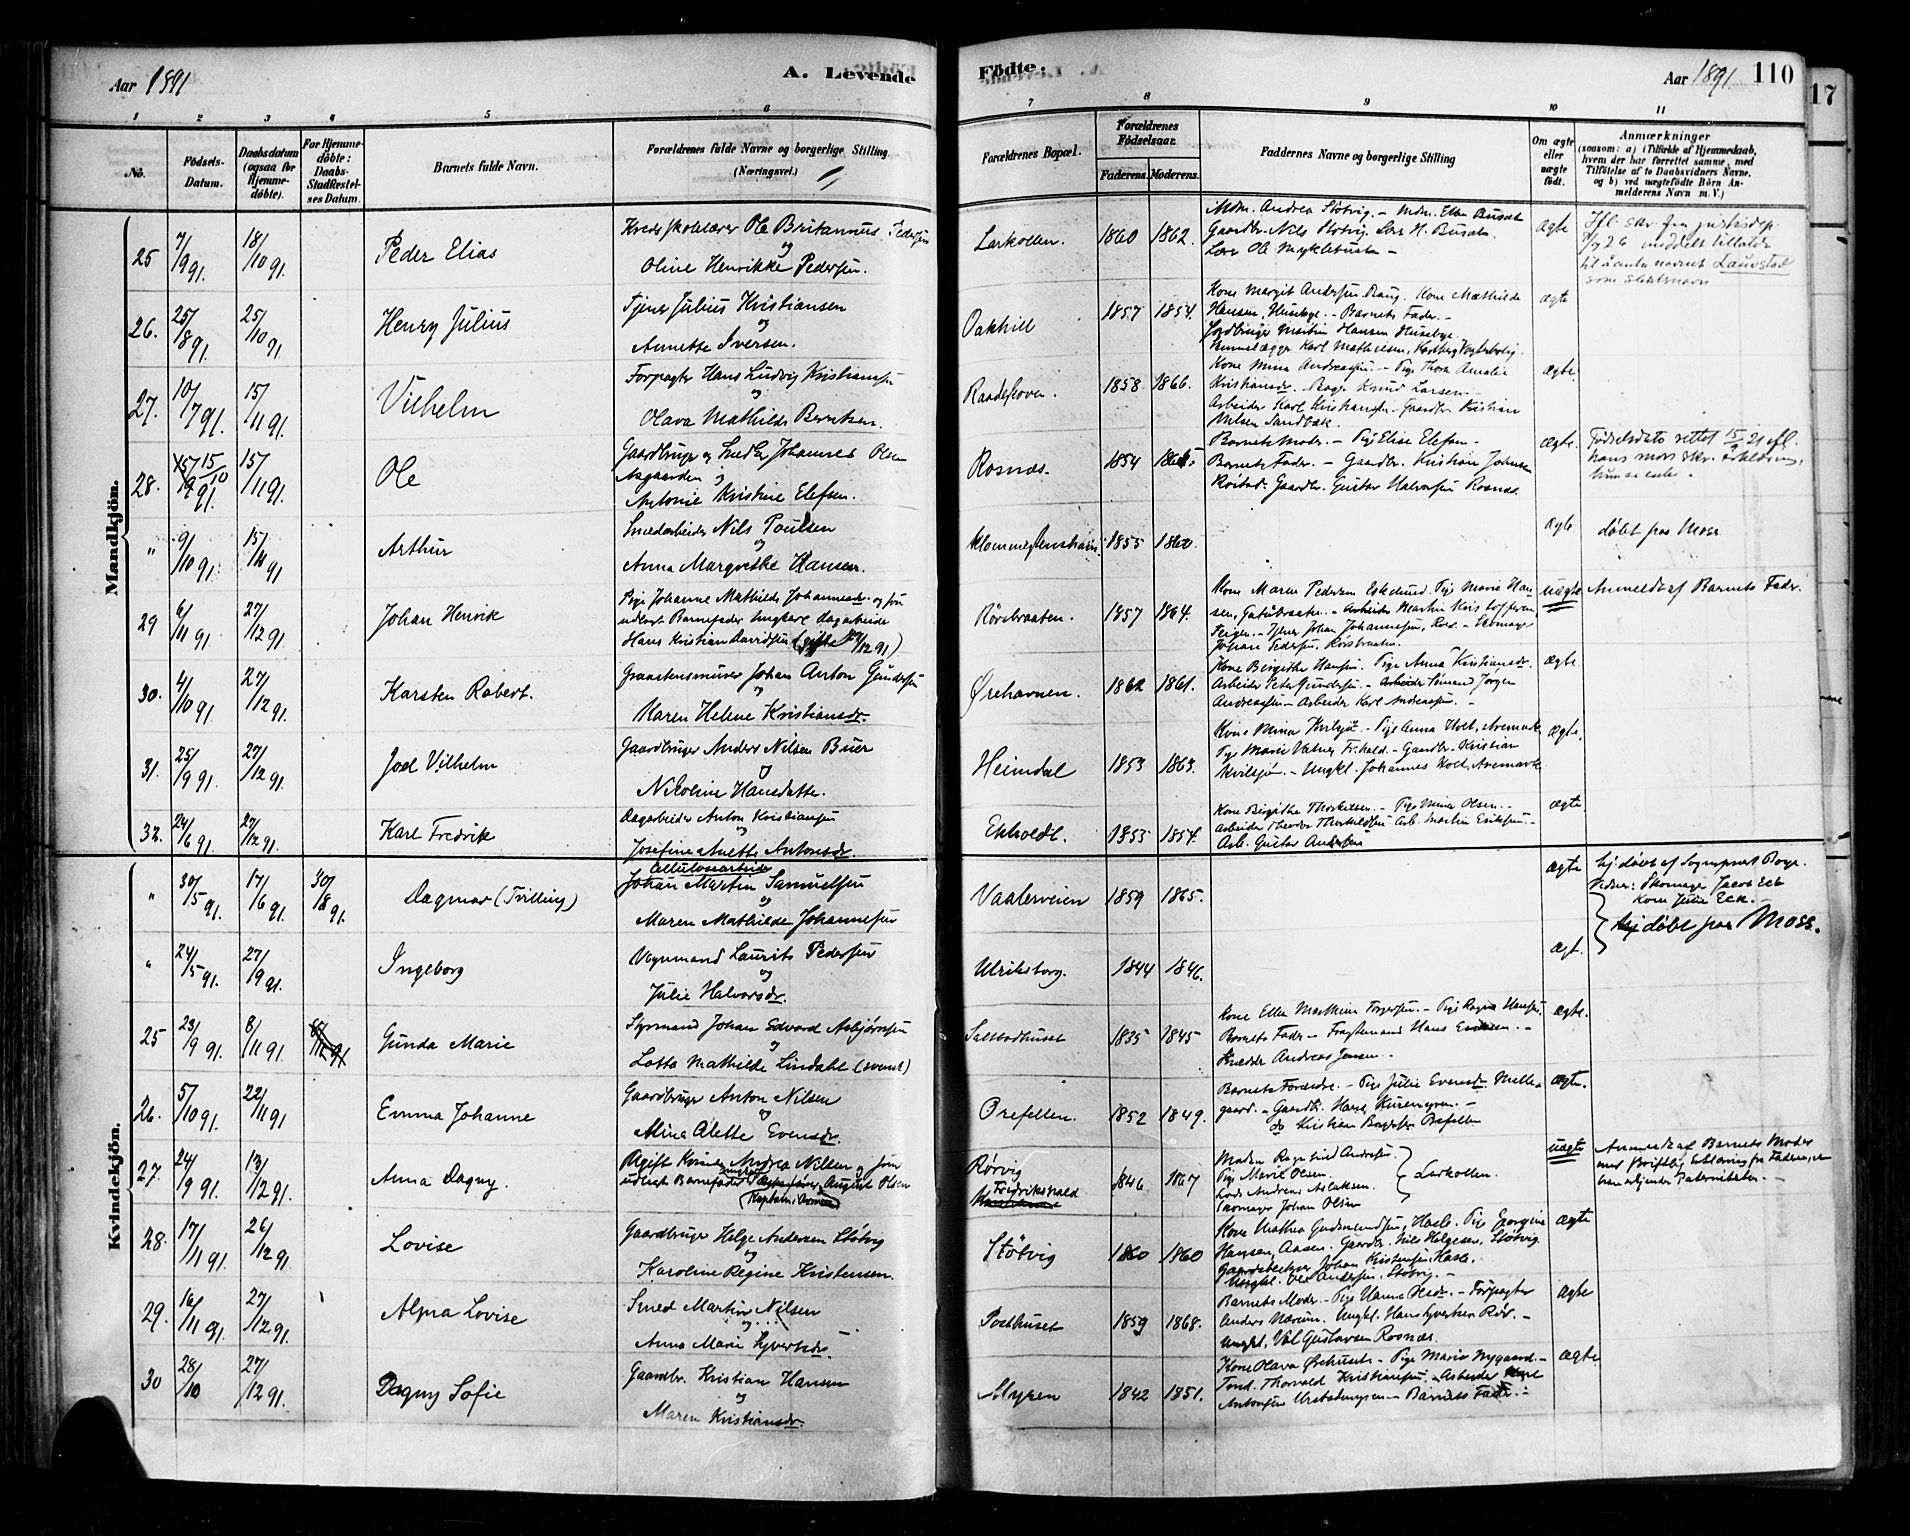 Aar 1891
A. Levende
Födte.
Aar 1891.
110
17
1 2 3 4 5 6 7 8 9 10 11
No.
Födsels-Datum.
Daabsdatum (ogsaa for Hjemme-döbte).
For Hjemme-döbte: Daabs-Stadfæstel-ses Datum.
Barnets fulde Navn.
Forældrenes fulde Navne og borgerlige Stilling (Næringsvei.)
Forældrenes Bopæl.
Forældrenes Födselsaar.
Faderens. Moderens.
Faddernes Navne og borgerlige Stilling
Om ægte eller uægte födt.
Anmærkninger (saasom: a) i Tilfælde af Hjemmedaab, hvem der har forrettet samme, med Tilföielse af to Daabsvidners Navne, og b) ved uægtefödte Börn An-melderens Navn m. V.)
Mandkjön.
25 7/9 91. 18/10 91. Peder Elias
Kredsskolelærer Ole Britannus Pedersen
og
Oline Henrikke Pedersen.
Larkollen. 1860 1862.
Mdm. Andrea Støtvig. - Mdm. Ellen Busæt
Gaardbr. Nils Støtvig. Lars H. Busæt.
Ole Myklebusten -
ægte
Ifl. skr. fra justisdep.
26 meddelt tillatelse
til å anta navnet Lauvstad
som slektsnavn
26. 25/8 91. 25/10 91. Henry Julius
Tjener Julius Kristiansen
og
Annette Iversen.
Oakhill 1857 1854.
Kone Margit Andersen Raug. Kone Mathilde
Hansen, Huseby. - Barnets Fader. -
Jordbruger Martin Hansen Husebye.
Karl Mathiesen,
ægte
27. 10/7 91. 15/11 91. Vilhelm
Forpagter Hans Ludvig Kristiansen
og
Olava Mathilde Berntsen.
Raadeskoven. 1858 1866.
Kone Mina Andreassen - Pige Thora Amalie
Kristiansdr. Knud Larsen.
Arbeider Karl Kristiansen - Gaardbr. Kristian
Nilsen Sandbæk.
ægte.
28. 15/10 91. 15/11 91. Ole
Gaardbruger og Snedker Johannes Olsen
Aagaarden og
Antonie Kristine Elefsen.
Rosnæs. 1854 1865
Barnets Moder. - Pige Elise Elefsen -
Barnets Fader. - Gaardbr. Kristian Johnsen
Gaardbr. Gustav Halvorsen Rosnæs.
ægte.
Fødselsdato rettet 15/9 21 efl.
hans mors skr. erklæring,
" 9/10 91. 15/11 91 Arthur
Smedarbeider Nils Poulsen
og
Anna Margrethe Hansen.
1855 1860.
ægte
døbt paa Moss
29 6/11 91. 27/12 91. Johan Henrik
Pige Johanne Mathilde Johannesdr. og som
udlagt Barnefader Ungkarl Dagarbeider
Hans Kristian Davidsen (gifte /12 91)
Rørsbraaten. 1857 1864.
Kone Maren Pedersen Eskelund. Pige Marie Han-
sen, - Arbeider Martin Kristoffersen
Johan Johannesen, - Skomager
Johan Pedersen, Rørsbraaten.
uægte
Anmeldt af Barnets Fader.
30. 4/10 91. 27/12 91. Karsten Robert.
Graastensmurer Johan Anton Gundersen
og
Karen Helene Kristiansdr.
Ørehavnen. 1862 1861.
Kone Birgitte Hansen. Pige Anna Kristiansdr.
Arbeider Peter Gundersen - Sømand Jørgen
Andreassen - Arbeider Karl Andreassen. -
ægte.
31. 25/9 91. 27/12 91. Joel Vilhelm
Gaardbruger Anders Nilsen Buer
og
Nikoline Hansdatter.
Heimdal 1853 1863.
Kone Mina Kvilsjø. - Pige Anna Holt, Aremark
Pige Marie Fr.hald. - Gaardbr. Kristian
Kvilsjø. - Ungkl. Johannes Holt, Aremark
ægte.
32. 24/6 91. 27/12 91. Karl Fredrik
Dagarbeider Anton Kristiansen
og
Josefine Anette Antonsdr.
Ekholdt. 1853 1854.
Kone Birgithe Thorkelsen. - Pige Mina Olsen. -
Arbeider Theodor Arb. Martin Eriksen. -
Arb. Gustav Andersen
ægte
Kvindekjön.
" 30/5 91. 17/6 91. 30/8 91. Dagmar (Tvilling)
Cellulosearbeider
Johan Martin Samuelsen
og
Maren Mathilde Johannesen
Vaalerveien 1859 1865.
ægte
Hj.døbt af Sognepræst Boye.
Vidner: Skomager Jacob Eek
Kone Julie Eek.
døbt paa Moss.
" 24/5 91. 27/9 91. Ingeborg
Vognmand Laurits Pedersen
og
Julie Halvorsdr.
Ulriksborg. 1844 1846.
ægt.
25 23/9 91. 8/11 91. Gunda Marie
Styrmand Johan Edvard Asbjørnsen
og
Lotta Mathilde Lindahl (svensk)
Saltbodhuset 1835 1845
Kone Ellen Mathine - Pige Ragna Hansen,
Barnets Fader - Fragtemand Hans Eriksen. -
Snedker Andreas Jensen. -
ægte.
26. 5/10 91. 22/11 91 Emma Johanne
Gaardbruger Anton Nilsen
og
Alma Alette Evensdr.
Orefellen. 1852 1849.
Barnets Forældre. - Pige Julie Evensdr. Mella
gaard. - Gaardbr. Hans Kurengren. -
do Kristian
ægte.
27. 24/9 91. 13/12 91. Anna Dagny.
Ugift Kvinde Andrea Nilsen og som
udlagt Barnefader August Olsen
Rørvig
Fredrikshald
1846 1867
Madam Ragnhild Andersen
Pige Marie Olsen
Lods Andreas Aslaksen.
Skomager Johan Olsen
Larkollen.
uægte
Anmeldt af Barnets Moder
med skriftlig Erklæring fra Faderen, at
han erkjender Paterniteten. -
28. 17/11 91. 26/12 91. Lovise
Gaardbruger Helge Andersen Støtvig
og
Karoline Regine Kristensen.
Støtvig 1860 1860
Kone Mathea Gudmundsen, Hasle. Pige Georgine
Hansen, Aasen. Gaardbr. Nils Helgesen, Støtvig.
Johan Kristensen Hasle.
Ungkl. Ole Andersen, Støtvig. -
ægte
29. 16/11 91. 27/12 91. Alma Lovise
Smed Martin Nilsen
og
Anna Marie Syvertsdr.
Posthuset 1859 1868.
Barnets Moder - Pige Hanna Olsdr. - Forpagter
Anders Nærum. Ungkl. Hans Syvertsen Rør. -
Ungkl. Val. Gustavsen Rosnæs.
ægte
30 28/10 27/12 91. Dagny Sofie
Gaardbr. Kristian Hansen
og
Maren Kristiansdr.
Myren 1842 1851.
Kone Olava Ørehuset - Pige Marie Nygaard. -
Tond. Thorvald Kristiansen. - Arbeider
Antonsen - Barnets Fader. -
ægte